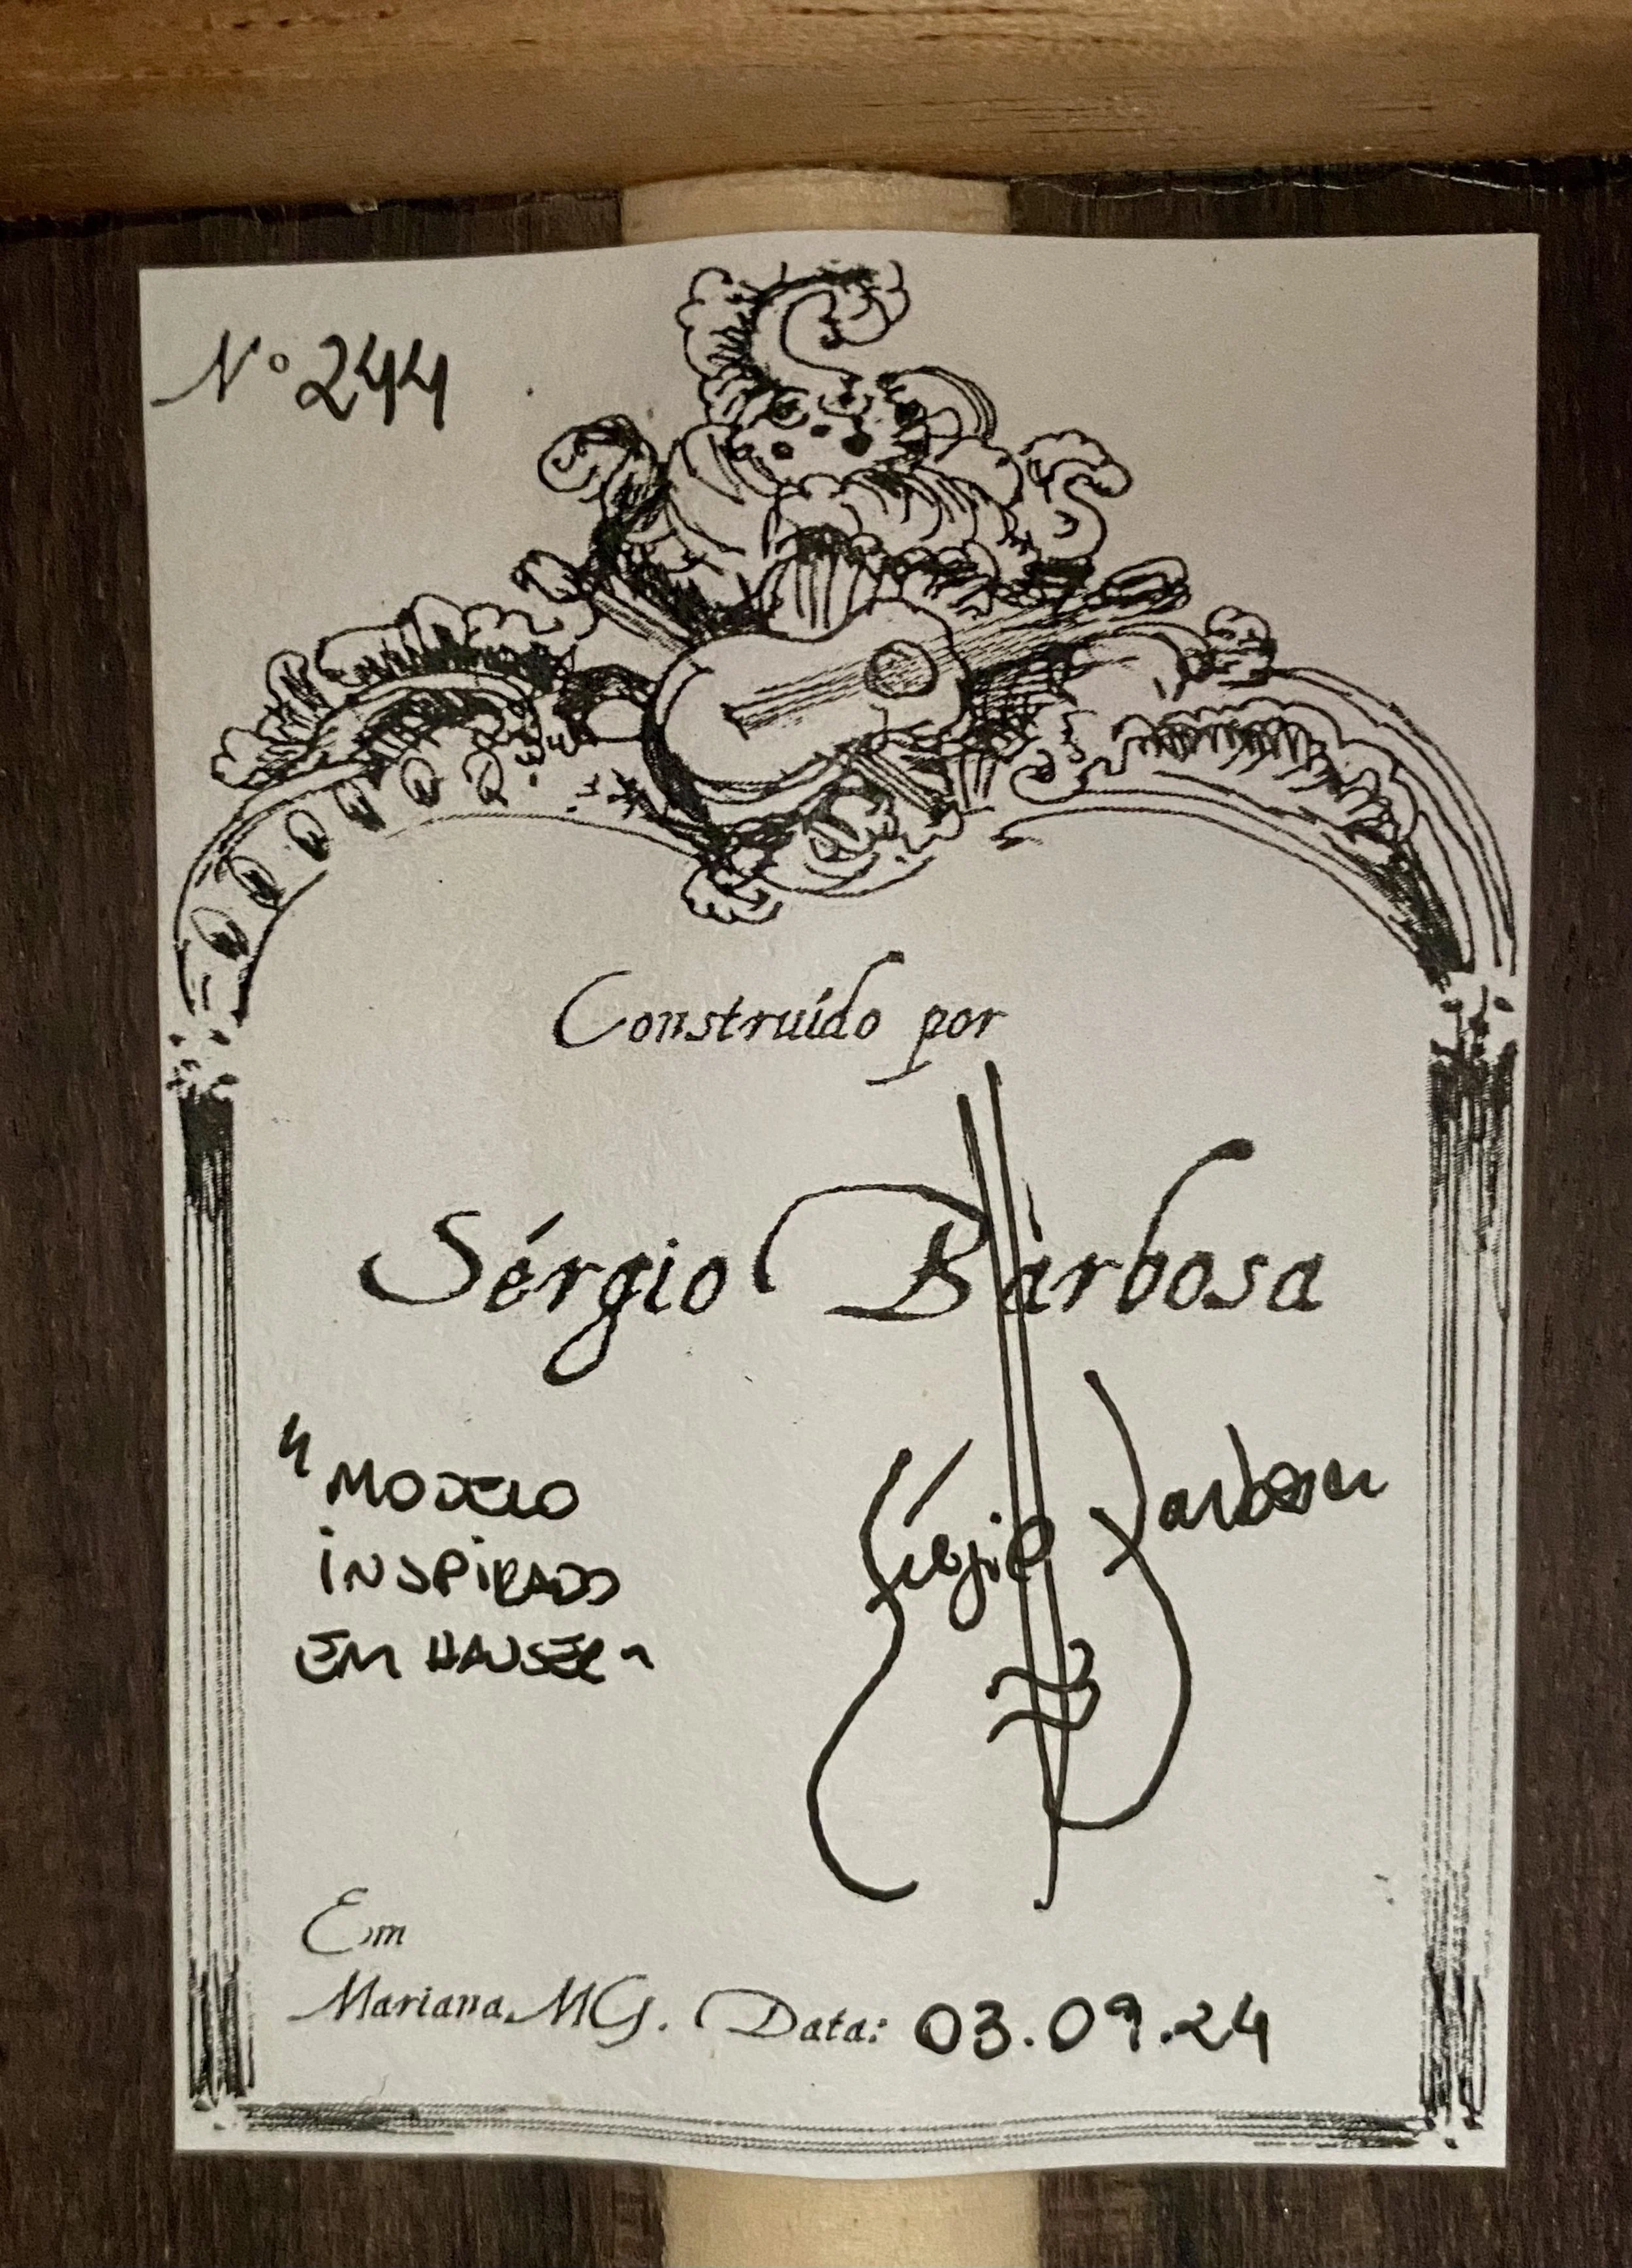 Nº 244
Construído por
Sérgio Barbosa
"MODELO
INSPIRADO
EM HAUSER"
Sérgio Barbosa
Em
Mariana MG. Data: 03.09.24